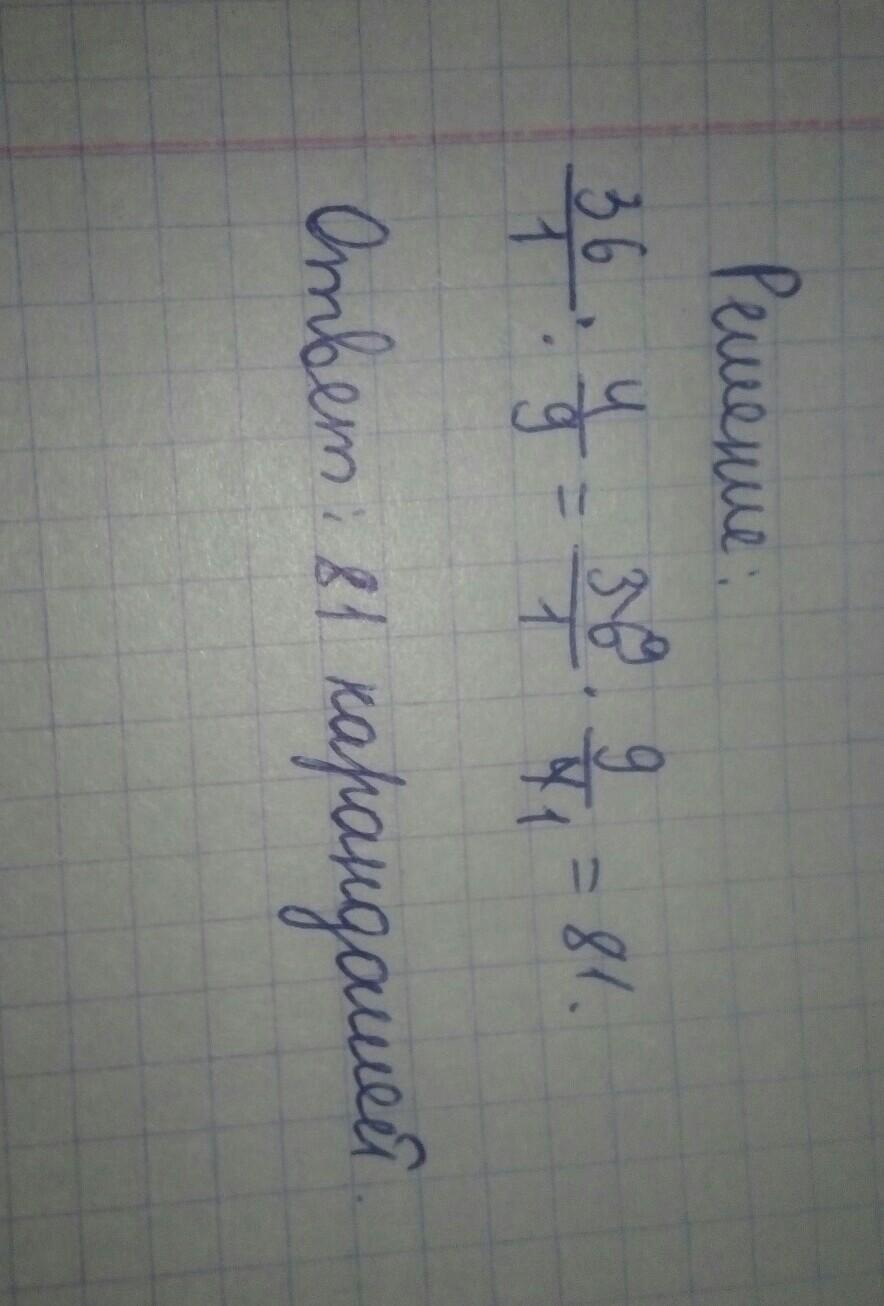 Решение:
36/1 : 4/9 = 36⁹/1 · 9/4₁ = 81.
Ответ: 81 карандашей.